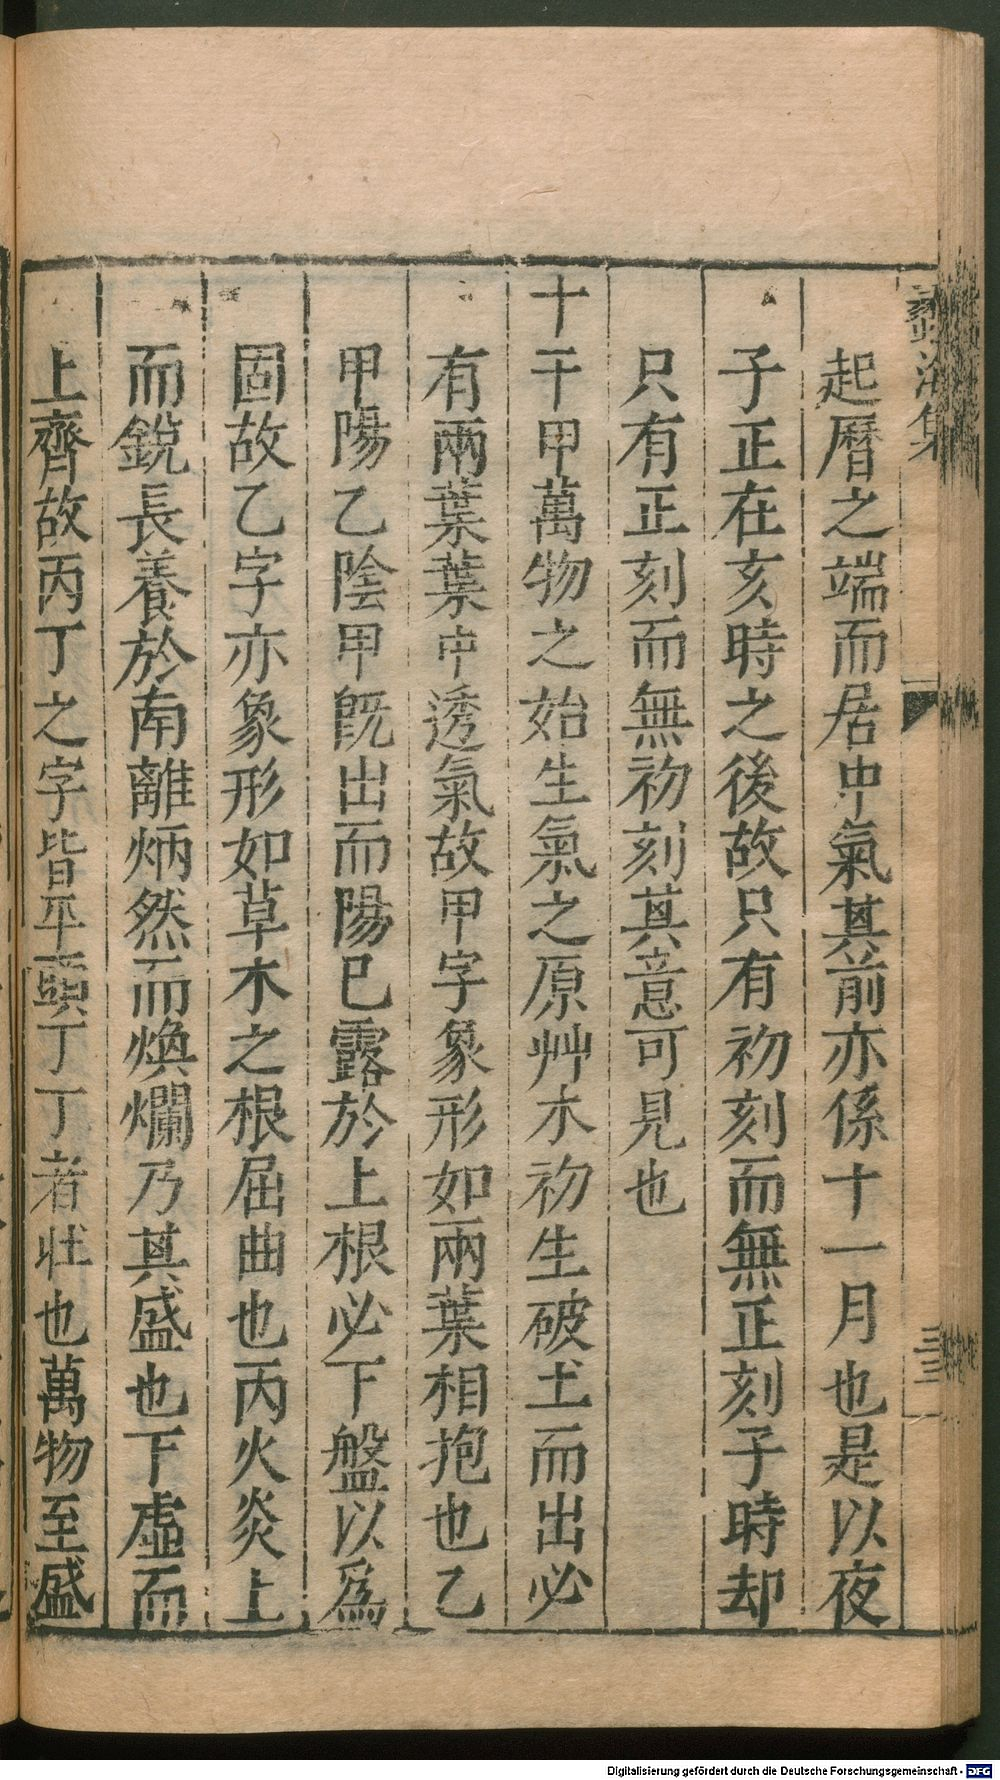 蠡海集
三三
起曆之端而居中氣其前亦係十一月也是以夜
子正在亥時之後故只有初刻而無正刻子時却
只有正刻而無初刻其意可見也
十干甲萬物之始生氣之原艸木初生破土而出必
有兩葉葉中透氣故甲字象形如兩葉相抱也乙
甲陽乙陰甲旣出而陽已露於上根必下盤以爲
固故乙字亦象形如草木之根屈曲也丙火炎上
而銳長養於南離炳然而煥爛乃其盛也下虛而
上齊故丙丁之字皆平頭丁丁者壯也萬物至盛
Digitalisierung gefördert durch die Deutsche Forschungsgemeinschaft - DFG